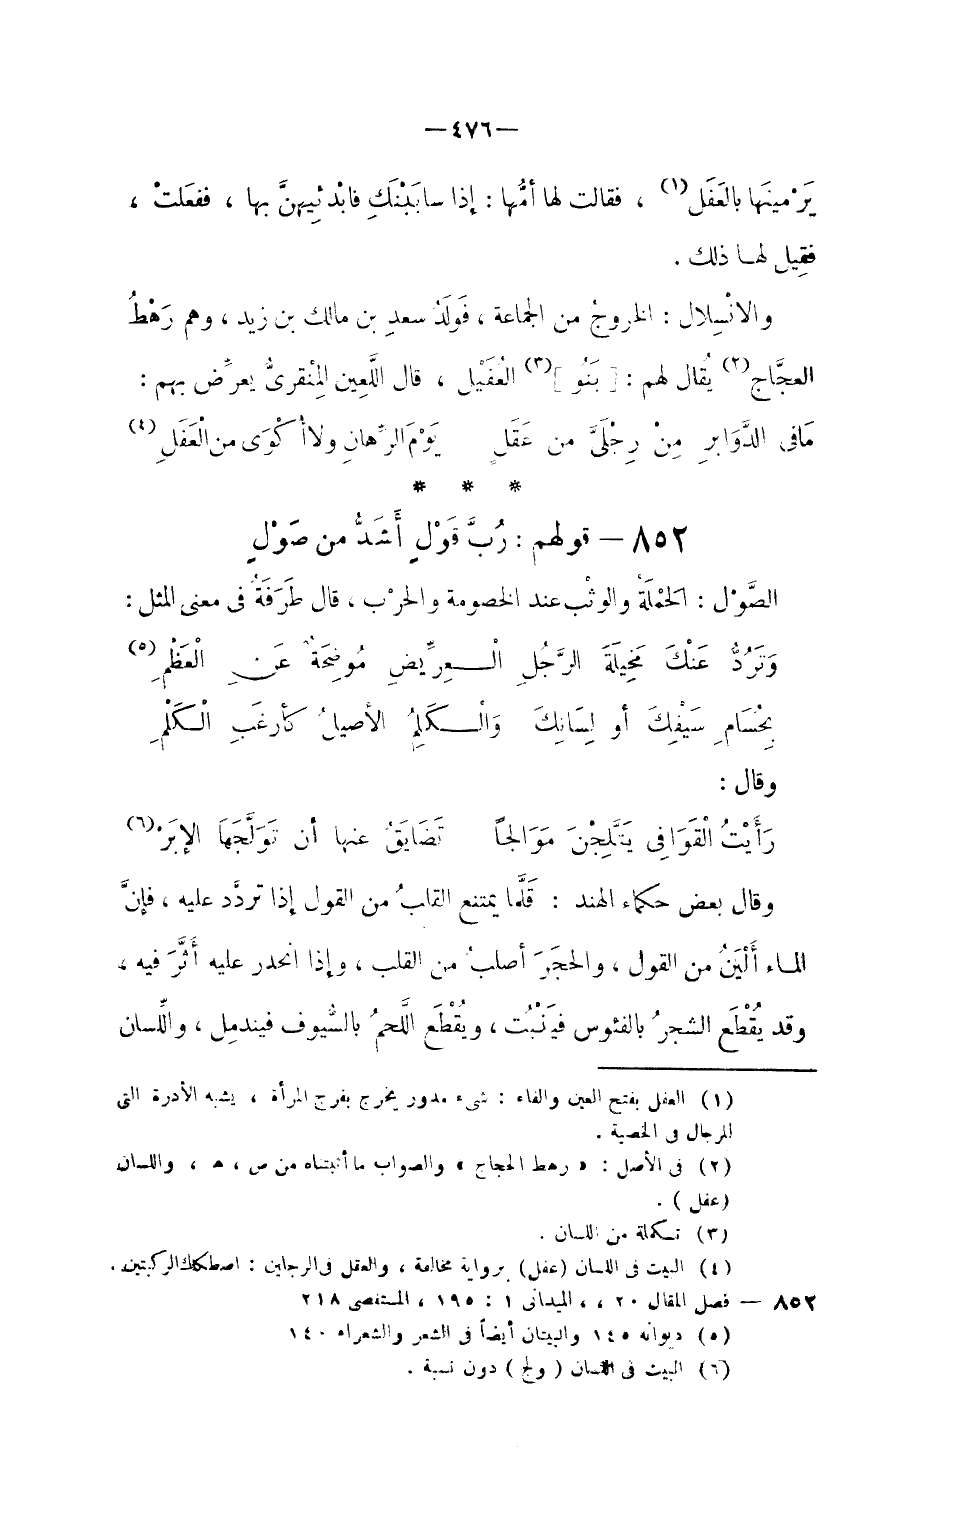 —٤٧٦—
يَرْمينَها بالعَفَل(١) ، فقالت لها أمُّها : إذا سابَبْنَكِ فابْدئيهنَّ بها ، ففعَلتْ ،
فقيل لهـا ذلك .
والانْسِلال : الخروجُ من الجماعة ، فَولَدُ سعدِ بن مالك بن زيد ، وهم رَهْطُ
العجَّاج(٢) يُقال لهم : [ بَنُو ](٣) العُفَيْل ، قال اللَّعين المِنْقرىُّ يعرِّض بهم :
مَافى الدَّوَابرِ مِنْ رِجْلَىَّ من عَقَلٍ يَوْمَ الرِّهانِ ولا أُكْوَى من الْعَفَلِ(٤)
* * *
٨٥٢ – قولهم : رُبَّ قَوْلٍ أَشَدُّ من صَوْلٍ
الصَّوْل : الحَمْلَةُ والوثْب عند الخصومة والحرْب ، قال طَرَفَةُ فى معنى المثل :
وَتَرُدُّ عَنْكَ مَخِيلَةَ الرَّجُلِ الْـعِرِّيضِ مُوضِحَةٌ عَنِ الْعَظْمِ(٥)
بِحُسَامِ سَيْفِكَ أو لِسَانِكَ وَالْـكَلِمُ الأصيلُ كأرغَبِ الْـكَلْمِ
وقال :
رَأَيْتُ الْقَوَافِى يَتَّلِجْنَ مَوَالجاً تَضَايَقُ عنها أن تَوَلَّجَهَا الإبَرْ(٦)
وقال بعض حكماء الهند : قَلَّما يمتنع القلبُ من القول إذا تردَّد عليه ، فإنَّ
المـاء أَلْيَنُ من القول ، والحجَرَ أصلبُ من القلب ، وإذا انحدر عليه أثَّرَ فيه ،
وقد يُقْطَع الشجرُ بالفئوس فيَنْبُت ، ويُقْطَع اللَّحمُ بالسُّيوف فيندمل ، واللِّسان
(١) العفل بفتح العين والفاء : شىء مدور يخرج بفرج المرأة ، يشبه الأدرة التى
للرجال فى الخصية .
(٢) فى الأصل : « رهط الحجاج » والصواب ما أثبتناه من ص ، هـ ، واللسان
(عفل ) .
(٣) تـكملة من اللسان .
(٤) البيت فى اللسان (عفل) برواية مخالفة ، والعقل فى الرجلين : اصطكاك الركبتين .
٨٥٢ — فصل المقال ٢٠ ، ، الميدانى ١ : ١٩٥ ، المستقصى ٢١٨
(٥) ديوانه ١٤٥ والبيتان أيضاً فى الشعر والشعراء ١٤٠
(٦) البيت فى اللسان ( ولج ) دون نسبة .